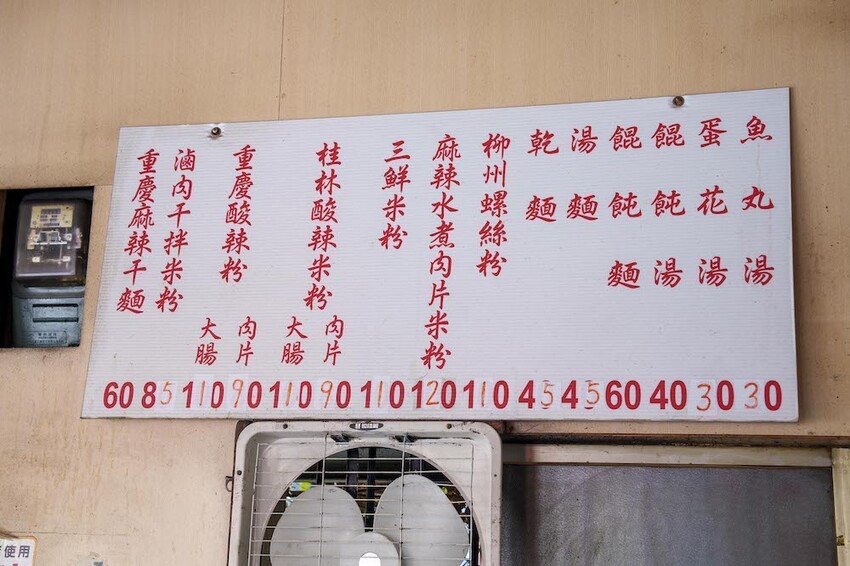 魚丸湯
蛋花湯
餛飩湯
餛飩麵
湯麵
乾麵
柳州螺絲粉
麻辣水煮肉片米粉
三鮮米粉
桂林酸辣米粉
肉片
大腸
重慶酸辣粉
肉片
大腸
滷肉干拌米粉
重慶麻辣干麵
60 85 110 90 110 90 110 120 110 45 45 60 40 30 30
使用